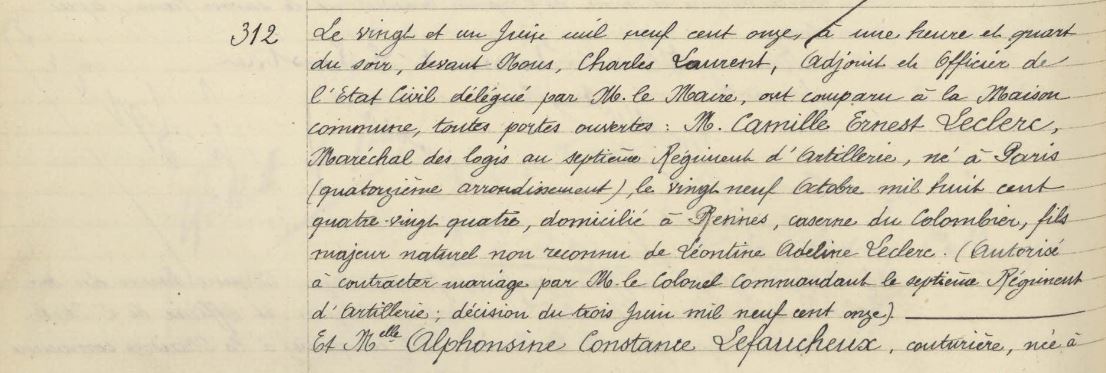 312 Le vingt et un Juin mil neuf cent onze, à une heure et quart
du soir, devant Nous, Charles Laurent, Adjoint et Officier de
l'Etat Civil délégué par M. le Maire, ont comparu à la Maison
commune, toutes portes ouvertes : M. Camille Ernest Leclerc,
Maréchal des logis au septième Régiment d'Artillerie, né à Paris
(quatorzième arrondissement), le vingt neuf Octobre mil huit cent
quatre-vingt quatre, domicilié à Rennes, caserne du Colombier, fils
majeur naturel non reconnu de Léontine Adeline Leclerc. (Autorisé
à contracter mariage par M. le Colonel Commandant le septième Régiment
d'Artillerie ; décision du trois Juin mil neuf cent onze)
Et Melle Alphonsine Constance Lefaucheux, couturière, née à